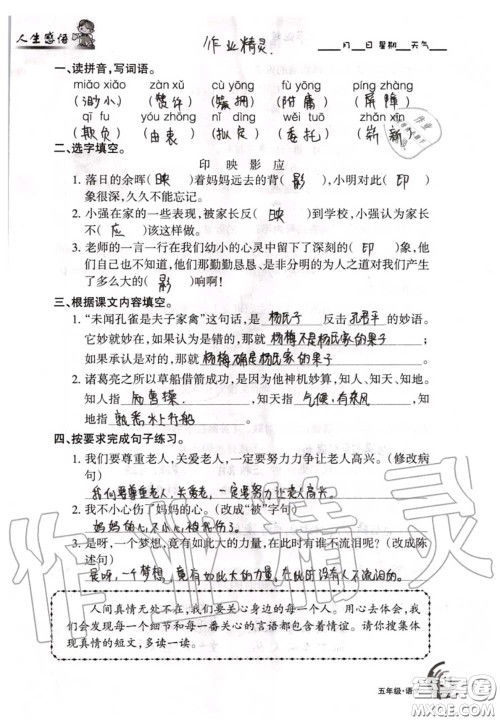 人生感悟
作业精灵.
____月____日 星期____天气____
一、读拼音，写词语。
miǎo xiǎo zàn xǔ cù yōng fù yōng píng zhàng
(渺小) (赞许) (簇拥) (附庸) (屏障)
qī fu yóu zhōng nǐ dìng wěi tuō zhǎn xīn
(欺负) (由衷) (拟定) (委托) (崭新)
二、选字填空。
印 映 影 应
1. 落日的余晖( 映 )着妈妈远去的背( 影 )，小明对此( 印 )
象很深，久久不能忘记。
2. 小强在家的一些表现，被家长反( 映 )到学校，小强认为家长
不( 应 )该这样做。
3. 老师的一言一行在我们幼小的心灵中留下了深刻的( 印 )象，他
们自己也不知道，他们那勤勤恳恳、是非分明的为人之道对我们产生
了多么大的( 影 )响啊！
三、根据课文内容填空。
1. “未闻孔雀是夫子家禽”这句话，是 杨氏子 反击 孔君平 的妙语。
它妙就妙在，如果认为是错的，那就 杨梅不是杨氏家的果子
如果承认是对的，那就 杨梅确是杨氏家的果子 。
2. 诸葛亮之所以草船借箭成功，是因为他神机妙算，知人、知天、知地。
知人指 知曹操 ，知天指 气候，有东风 ，知
地指 熟悉水上行船 。
四、按要求完成句子练习。
1. 我们要尊重老人，关爱老人，一定要努力力争让老人高兴。(修改病
句)
我们要尊重老人，关爱老人，一定要努力让老人高兴。
2. 我不小心伤了妈妈的心。(改成“被”字句)
妈妈的心被我伤了。
3. 是呀，一个梦想，竟有如此大的力量，在此时有谁不流泪呢？(改成陈
述句)
是呀，一个梦想，竟有如此大的力量，在此时没有人不流泪的。
人间真情无处不在，我们要关心身边的每一个人。用心去体会，我
们会发现每一个细节和每一番关心的言语都包含着情谊。请你搜集体
现真情的短文，多读一读。
五年级·语
作业精灵
答案圈
MXQE.COM